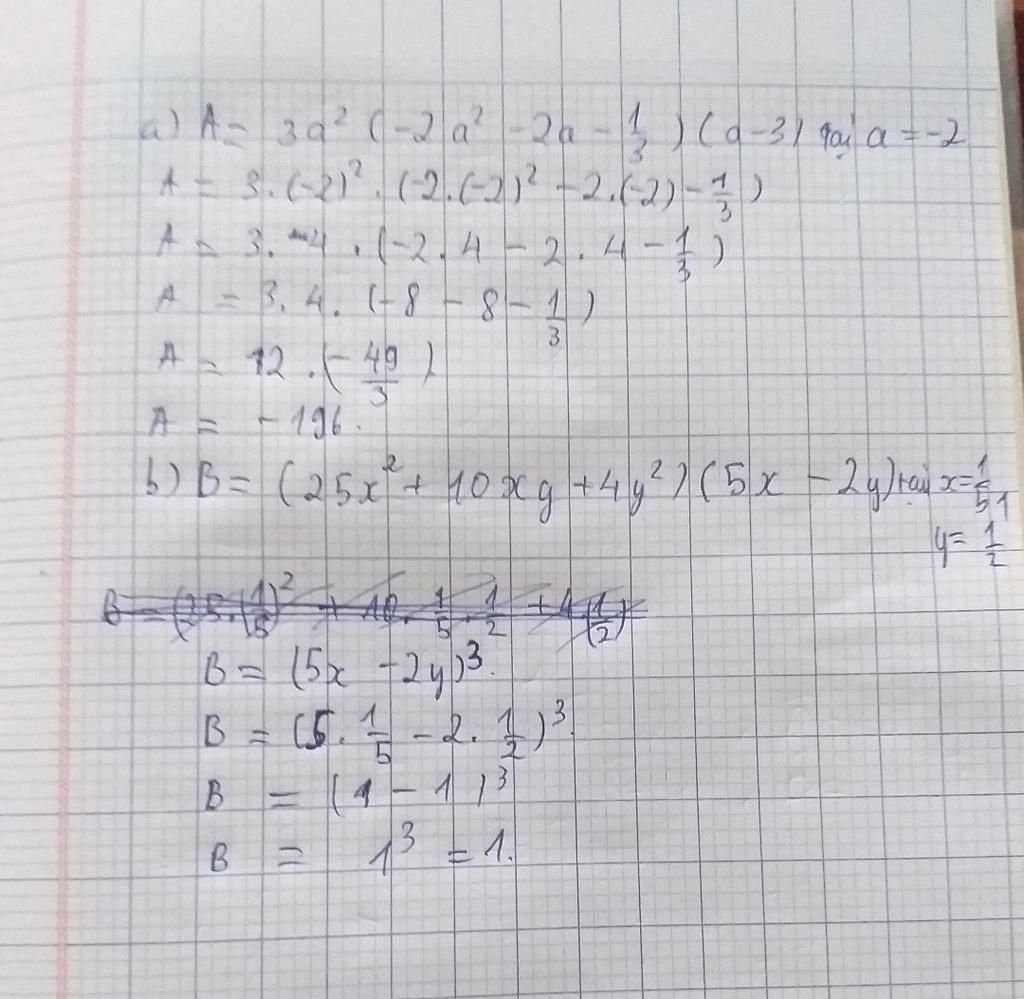 a) A = 3a² (-2a² - 2a - 1/3) (a - 3) tại a = -2
A = 3.(-2)² . (-2.(-2)² - 2.(-2) - 1/3)
A = 3. 4 . (-2. 4 - 2 . 4 - 1/3)
A = 3. 4. (-8 - 8 - 1/3)
A = 12 .(- 49/3)
A = - 196.
b) B = (25x² + 10xy + 4y²) (5x - 2y) tại x = 1/5
y = 1/2
B = (25.(1/5)² + 10. 1/5 . 1/2 + 4(1/2)
B = (5x - 2y)³.
B = (5. 1/5 - 2. 1/2)³.
B = (1 - 1)³
B = 1³ = 1.